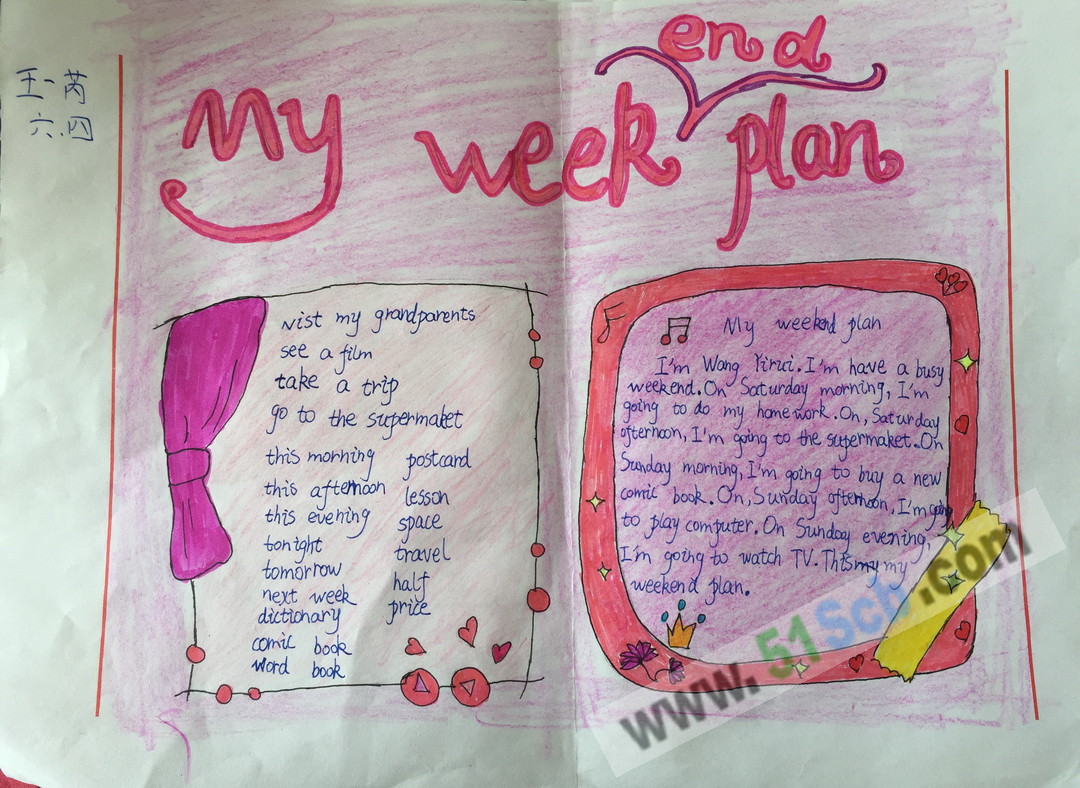 王一芮
六.四
My weekend plan
vist my grandparents
see a film
take a trip
go to the supermaket
this morning
this afternoon
this evening
tonight
tomorrow
next week
dictionary
comic book
word book
postcard
lesson
space
travel
half
price
My weekend plan
I'm Wang Yirui. I'm have a busy
weekend. On Saturday morning, I'm
going to do my homework. On, Saturday
afternoon, I'm going to the supermaket. On
Sunday morning, I'm going to buy a new
comic book. On, Sunday afternoon, I'm going
to play computer. On Sunday evening,
I'm going to watch TV. This my my
weekend plan.